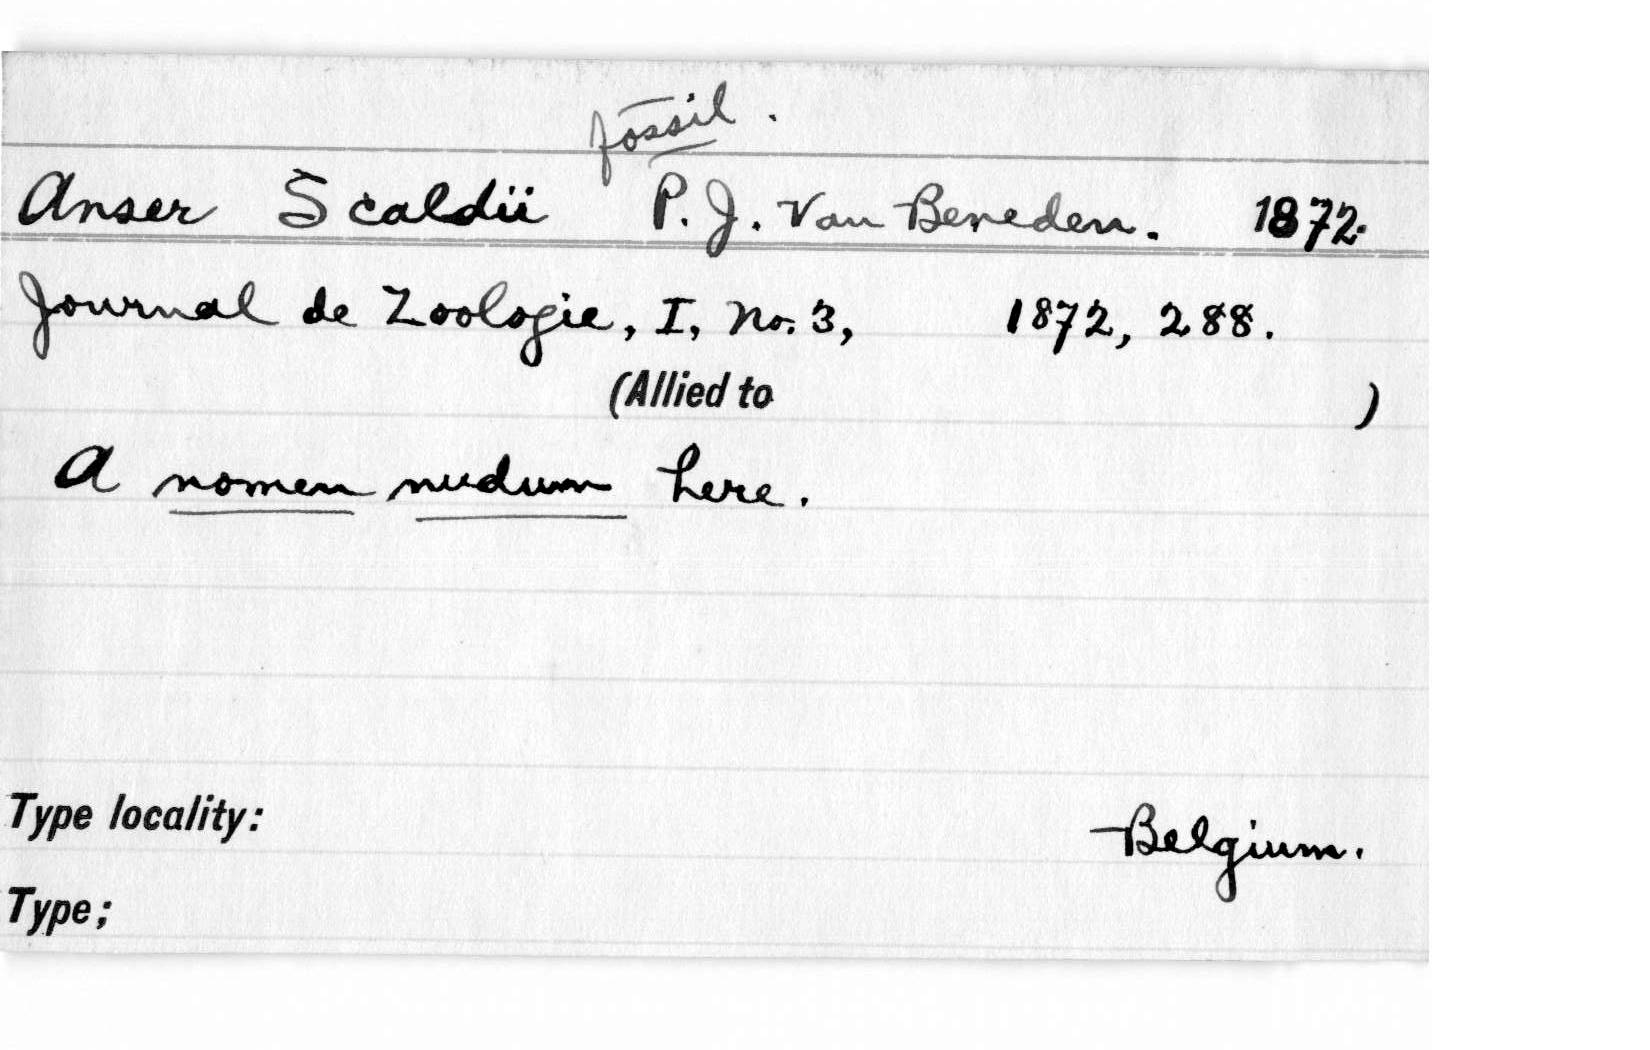 fossil.
Anser Scaldii P. J. Van Beneden. 1872.
Journal de Zoologie, I, No. 3, 1872, 288.
(Allied to )
A nomen nudum here.
Type locality: Belgium.
Type;